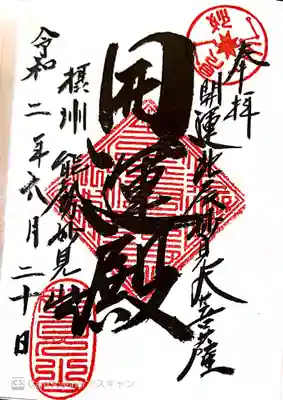 奉拝
開運北辰妙見大菩薩
開運殿
摂州
能勢妙見山
令和二年六月二十日
CS CamScanner でスキャン